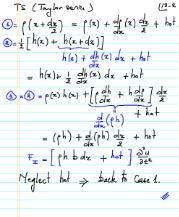 TS (Taylor series)
① = ρ(x + dx/2) = ρ(x) + dρ/dx (x) dx/2 + hot
② = 1/2 [h(x) + h(x+dx)]
h(x) + dh/dx (x) dx + hot
= h(x) + 1/2 dh/dx (x) dx + hot
① × ② = ρ(x) h(x) + [ρ dh/dx + h dρ/dx] dx/2
d/dx (ρh) + hot
= (ρh) + d/dx (ρh) dx/2 + hot
Fₓ = [ρh b dx + hot] ∂²u/∂t²
Neglect hot ⇒ back to Case 1.